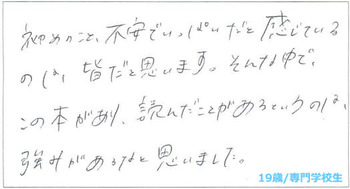 初めのこと、不安でいっぱいだと感じている
のは、皆だと思います。そんな中で、
この本があり、読んだことがあるというのは、
強みがあるなと思いました。
19歳/専門学校生